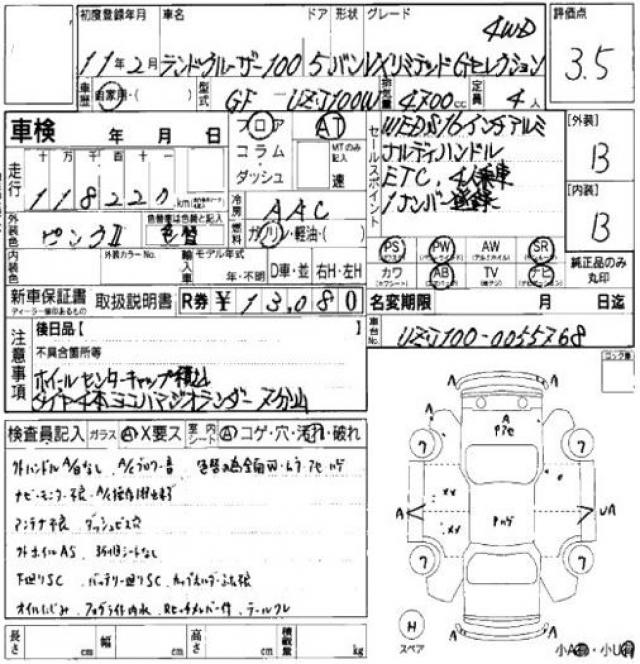 初度登録年月 車名 ドア 形状 グレード 評価点
11年2月 ランドクルーザー100 5 バン VXリミテッドGセレクション 4WD
3.5
車歴 自家用・( ) 型式 GF-UZJ100W 排気量 4700cc 定員 4人
車検 年 月 日
フロア AT
コラム MTのみ記入
ダッシュ 速
セールスポイント
WEDS16インチアルミ
ナルディハンドル
ETC. 4人乗車
1ナンバー登録
[外装]
B
[内装]
B
走行 十 万 千 百 十 一
118220km
冷房 AAC
燃料 ガソリン・軽油・( )
外装色 ピンクII 色替車は色替と記入 色替
内装色 外装カラーNo. 輸入車 モデル年式 年・不明 D車・並 右H・左H
PS PW AW SR
カワ AB TV ナビ
純正品のみ丸印
新車保証書 取扱説明書 R券 ¥13,080
ディーラー優印あるもの
名変期限 月 日迄
車台No. UZJ100-0055768
注意事項
後日品【 】
不具合箇所等
ホイールセンターキャップ積込
タイヤ4本ヨコハマジオランダー
検査員記入 ガラス A X要ス 室内 シート A コゲ・穴・汚れ・破れ
外ハンドル A/Bなし A/Cブロワー音 色替の為全面W・ムラ・アセ・ハゲ
ナビ・モニター不良 A/C操作
アンテナ不良 ダッシュビス穴
外ホイルAS 3列目シートなし
下廻りSC バッテリー廻りSC カップホルダーふた不良
オイルにじみ フォグライト内水 テールワレ
長さ cm 幅 cm 高さ cm 積載量 kg
ロック車
A A
A
Pアセ
ワ ワ
xx
A Pハゲ UA
xx
ワ ワ
H
スペア
A A
小A・小U